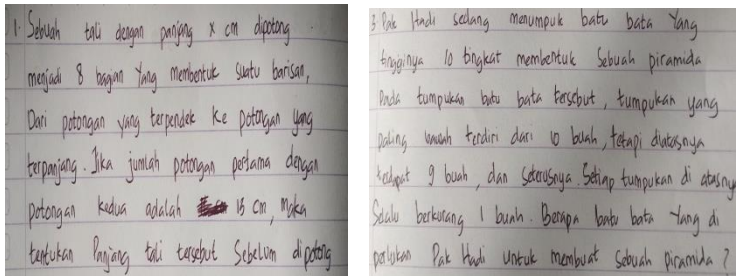 1. Sebuah tali dengan panjang x cm dipotong
menjadi 8 bagian yang membentuk suatu barisan,
Dari potongan yang terpendek ke potongan yang
terpanjang. Jika jumlah potongan pertama dengan
potongan kedua adalah 15 cm, maka
tentukan Panjang tali tersebut Sebelum dipotong
3. Pak Hadi sedang menumpuk batu bata Yang
tingginya 10 tingkat membentuk Sebuah piramida
Pada tumpukan batu bata tersebut, tumpukan yang
paling bawah terdiri dari 10 buah, tetapi diatasnya
terdapat 9 buah, dan seterusnya. Setiap tumpukan di atasnya
Selalu berkurang 1 buah. Berapa batu bata Yang di
perlukan Pak Hadi untuk membuat sebuah piramida?